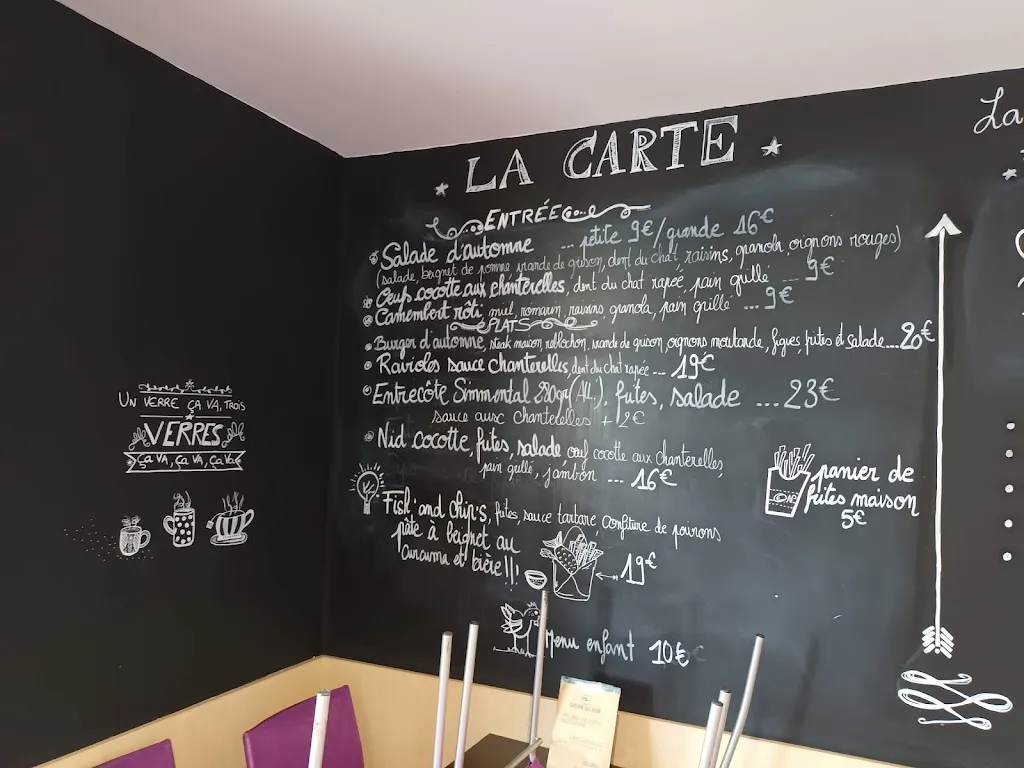 LA CARTE
La
ENTRÉE
Salade d'automne ... petite 9€/grande 16€
(salade, beignet de pomme, viande de grison, dent du chat, raisins, granola, oignons rouges)
Oeuf cocotte aux chanterelles, dent du chat rapée, pain grillé ... 9€
Camembert rôti, miel, romarin, raisins, granola, pain grillé ... 9€
PLATS
Burger d'automne, steak maison, reblochon, viande de grison, oignons moutarde, figues, frites et salade... 20€
Ravioles sauce chanterelles, dent du chat rapée ... 19€
Entrecôte Simmental 280gr (All.), frites, salade ... 23€
sauce aux chanterelles + 2€
Nid cocotte, frites, salade oeuf cocotte aux chanterelles,
pain grillé, jambon ... 16€
Fish and chip's, frites, sauce tartare confiture de poivrons
pâte à beignet au
Curcuma et bière!!
19€
Menu enfant 10€
panier de
frites maison
5€
UN VERRE ÇA VA, TROIS
VERRES
ÇA VA, ÇA VA, ÇA VA